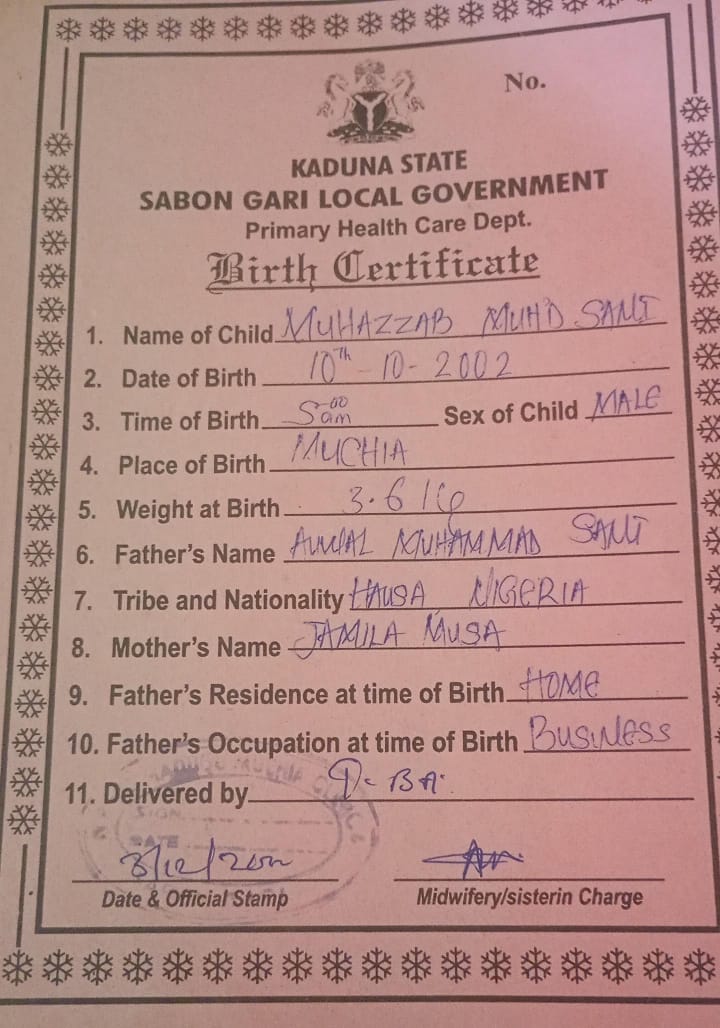 No.
KADUNA STATE
SABON GARI LOCAL GOVERNMENT
Primary Health Care Dept.
Birth Certificate
1. Name of Child MUHAZZAB MUH'D SANI
2. Date of Birth 10th - 10 - 2002
3. Time of Birth 5-00am Sex of Child MALE
4. Place of Birth MUCHIA
5. Weight at Birth 3.6
6. Father's Name AUWAL MUHAMMAD SANI
7. Tribe and Nationality HAUSA NIGERIA
8. Mother's Name JAMILA MUSA
9. Father's Residence at time of Birth HOME
10. Father's Occupation at time of Birth BUSINESS
11. Delivered by
MUCHIA CLINIC
DATE
Date & Official Stamp Midwifery/sisterin Charge